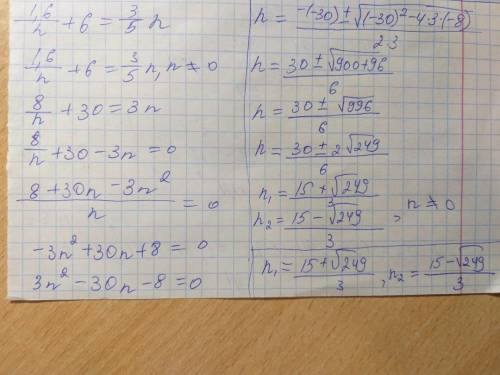 1,6/n + 6 = 3/5 n
1,6/n + 6 = 3/5 n, n ≠ 0
8/n + 30 = 3n
8/n + 30 - 3n = 0
(8 + 30n - 3n²)/n = 0
-3n² + 30n + 8 = 0
3n² - 30n - 8 = 0
n = (-(-30) ± √((-30)² - 4·3·(-8)))/(2·3)
n = (30 ± √(900 + 96))/6
n = (30 ± √996)/6
n = (30 ± 2√249)/6
n₁ = (15 + √249)/3
n₂ = (15 - √249)/3, n ≠ 0
n₁ = (15 + √249)/3, n₂ = (15 - √249)/3